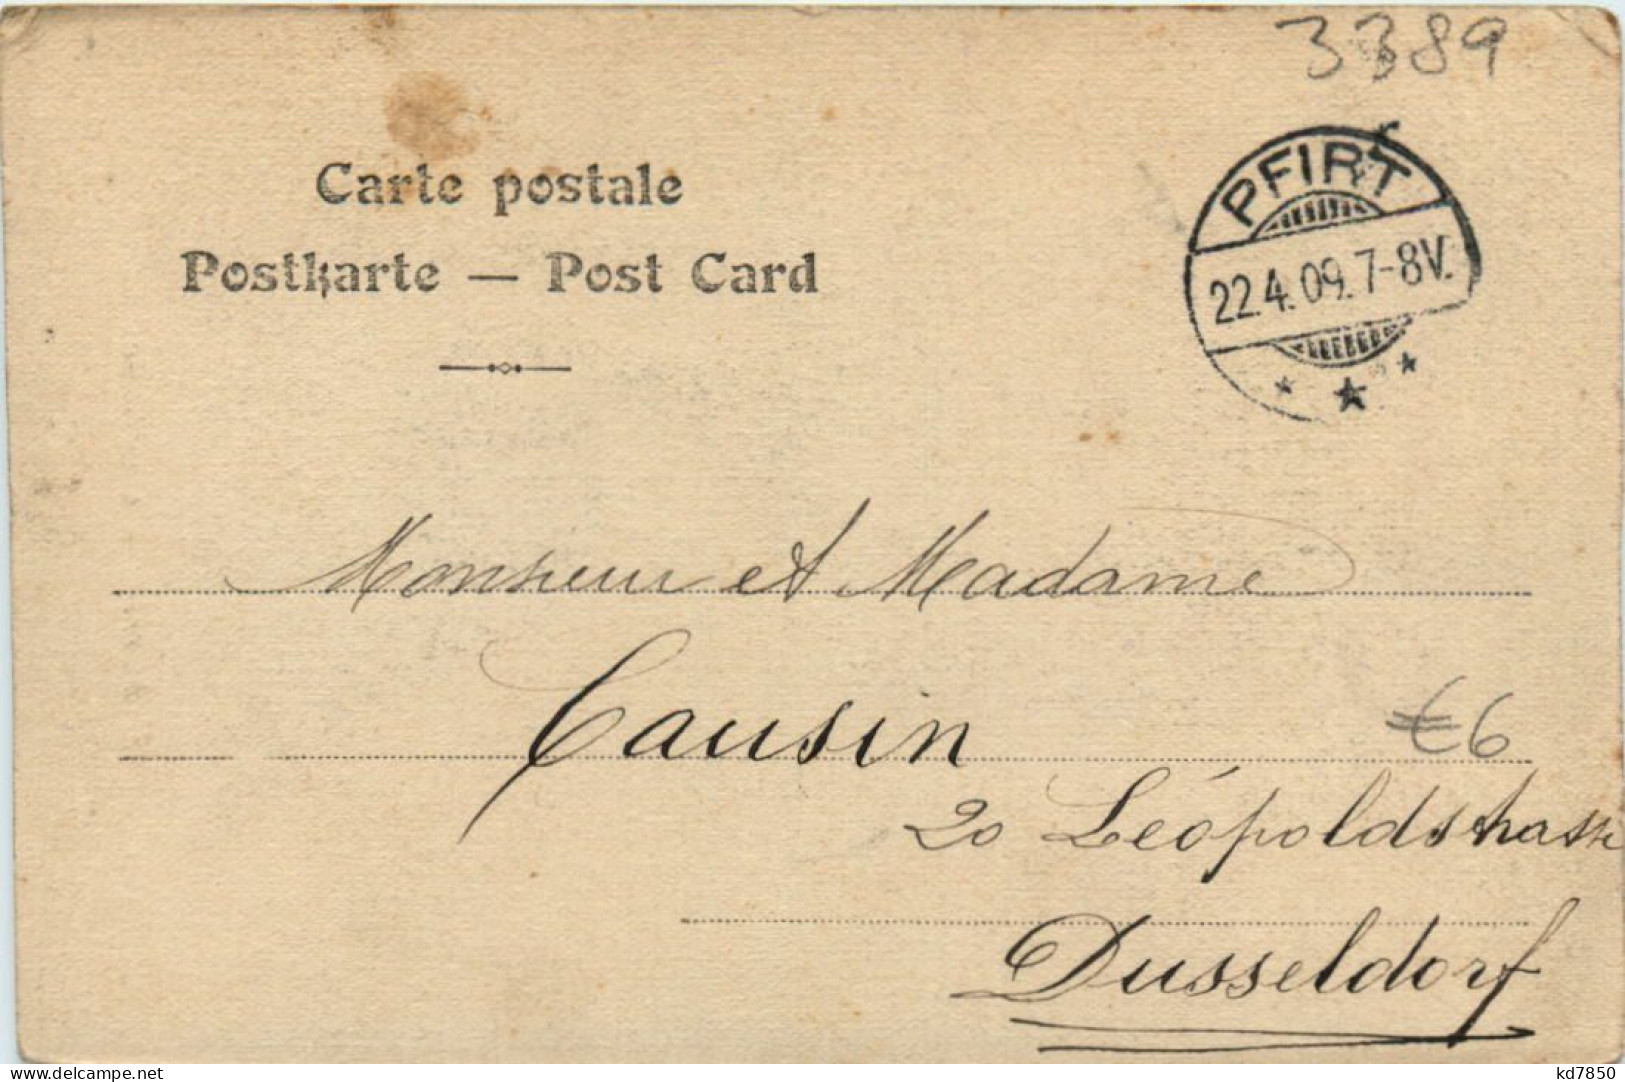 3389
Carte postale
Postkarte — Post Card
PFIRT
22.4.09. 7-8V.
Monsieur et Madame
Causin
€6
20 Léopoldstrasse
Dusseldorf
delcampe.net
kd7850